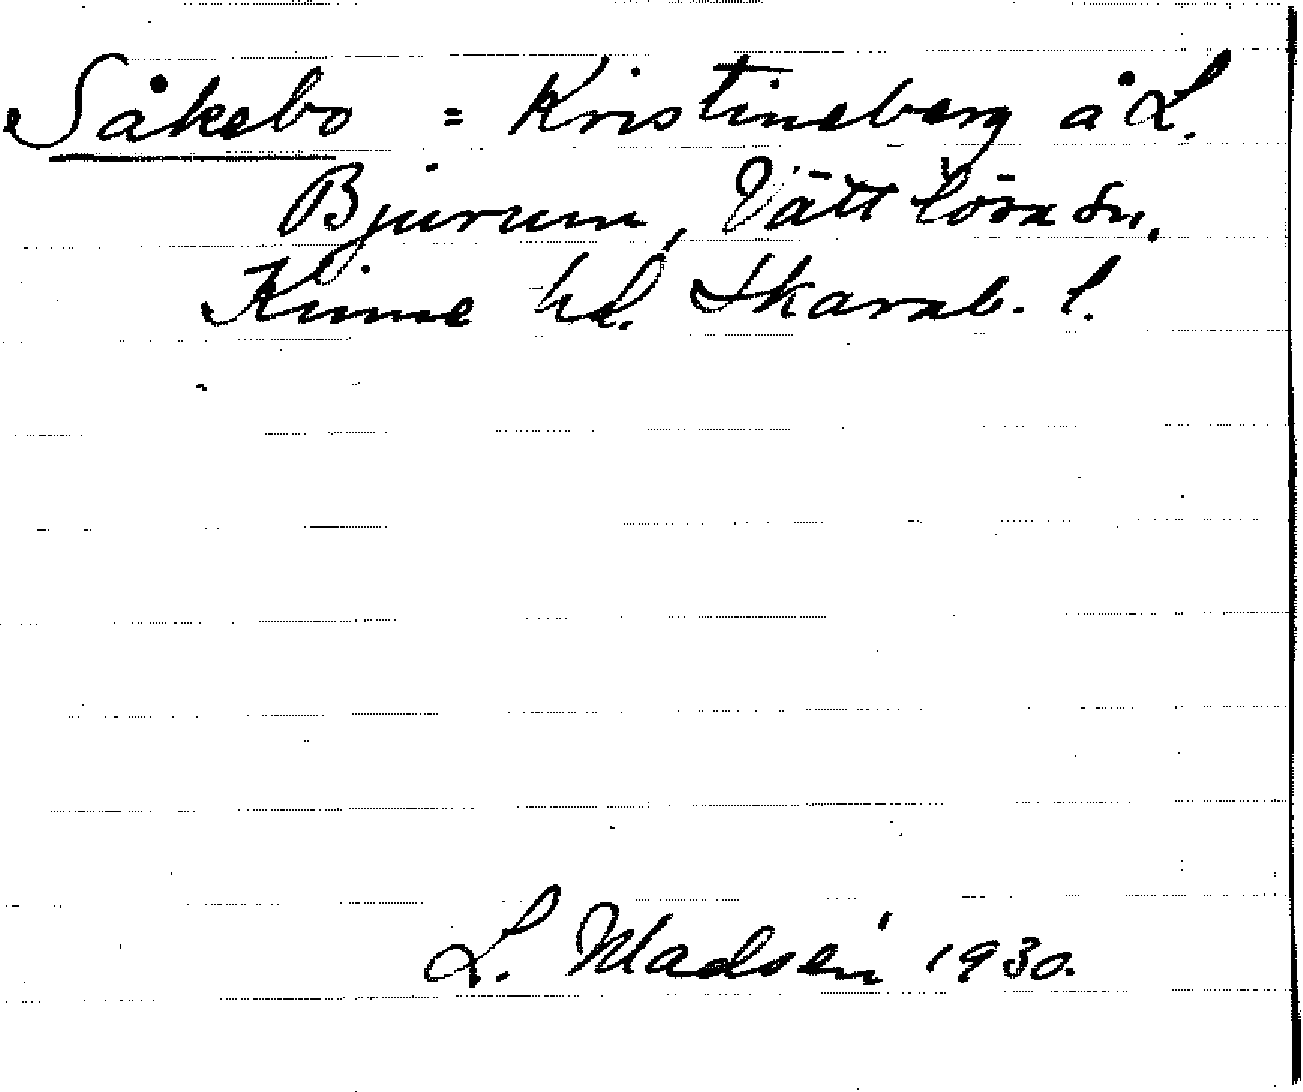 Såkebo = Kristineberg å L.
Bjurum, Vättlösa sn,
Kinne hd. Skarab. l.
L. Madsén 1930.